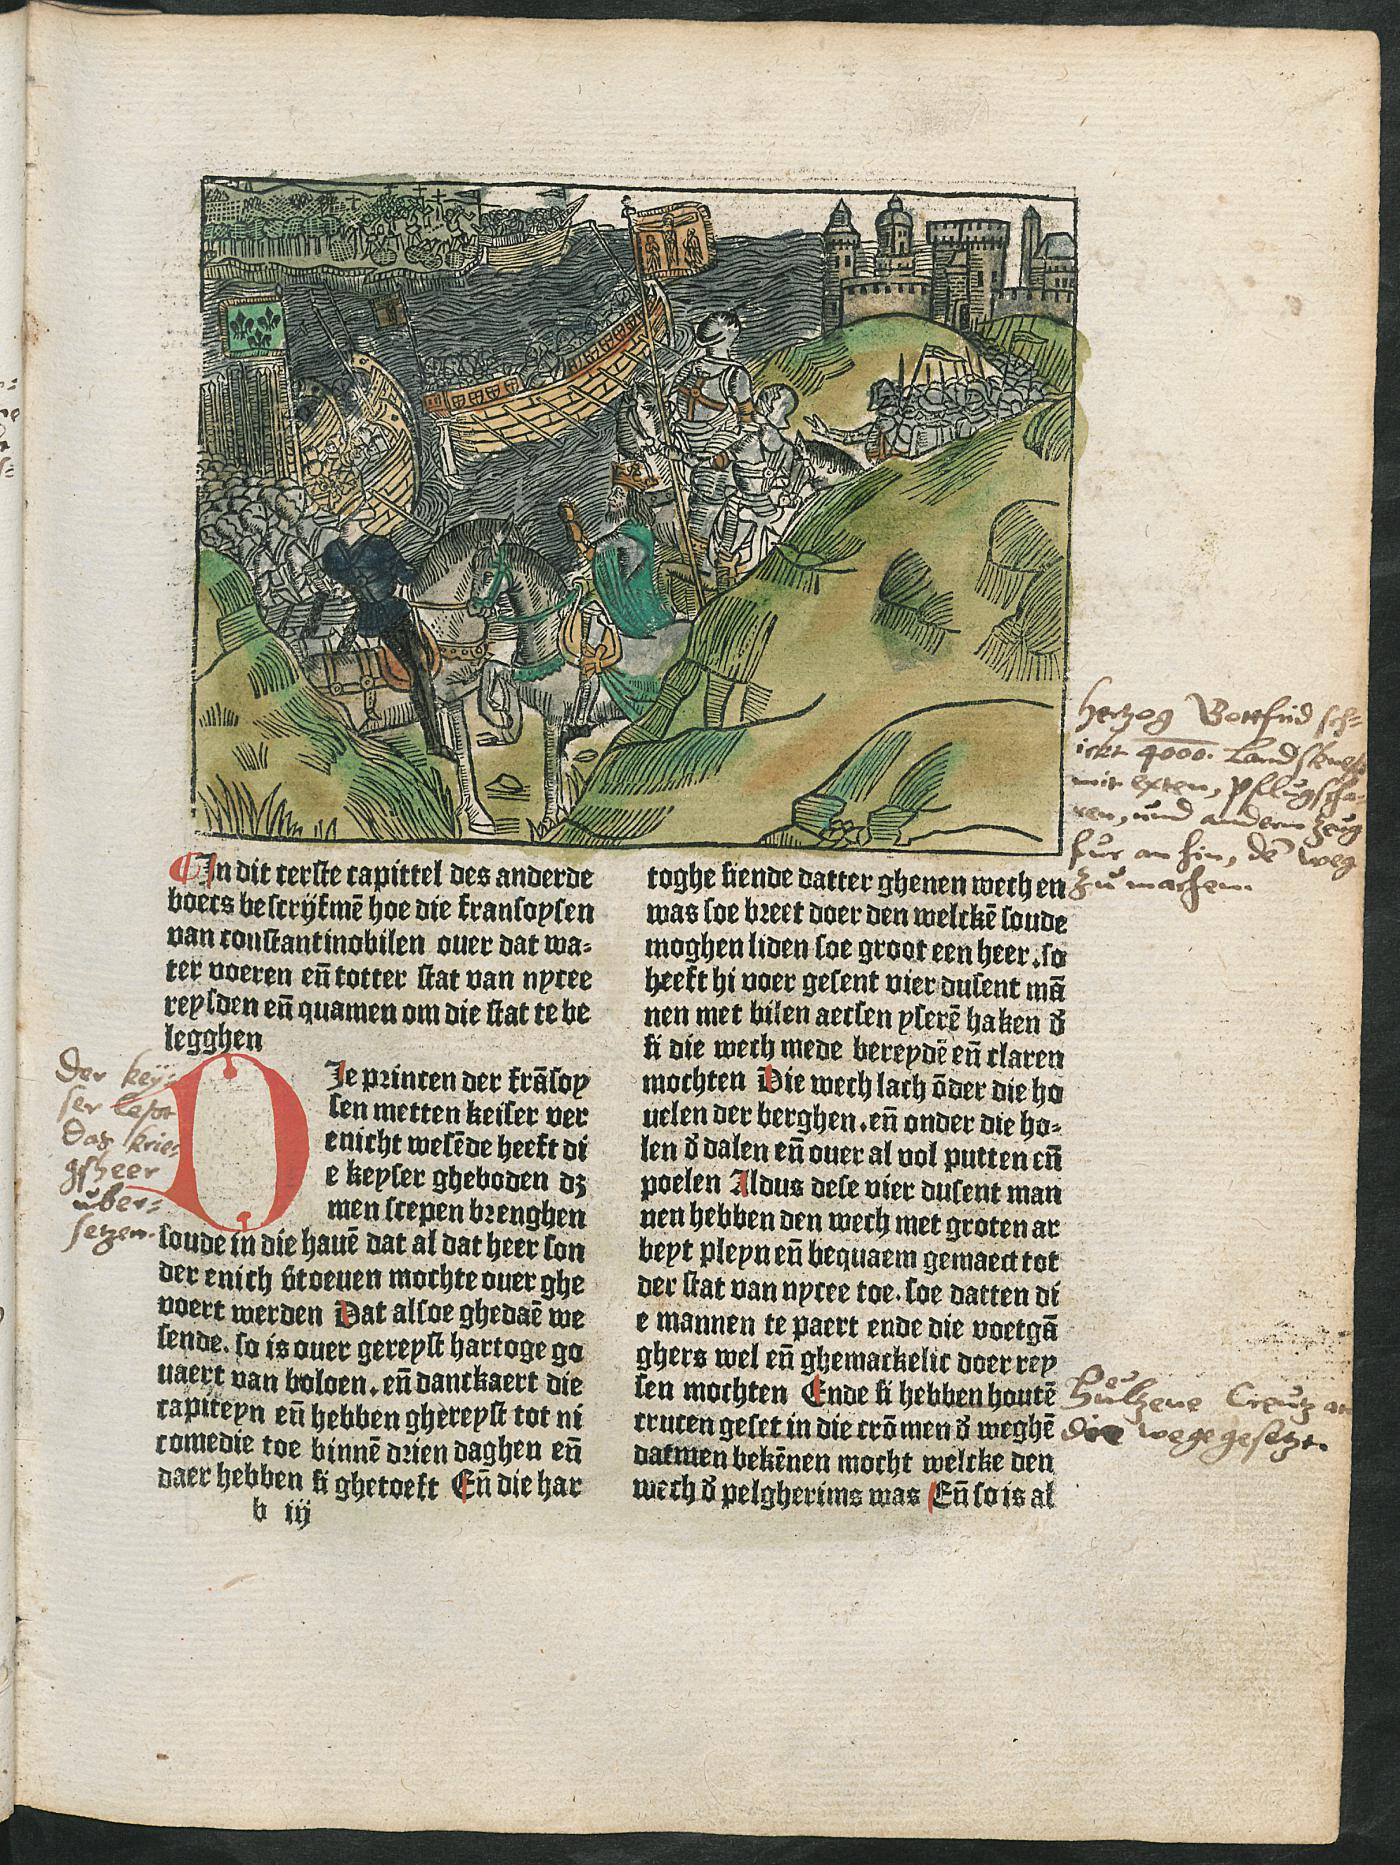 In dit eerste capittel des anderde
boecs bescrijfmē hoe die fransoysen
van constantinobilen ouer dat wa-
ter voeren eñ totter stat van nycee
reysden eñ quamen om die stat te be
legghen
DJe princen der frāsoy
sen metten keiser ver
enicht wesēde heeft di
e keyser gheboden dꝫ
men scepen brenghen
soude in die hauē dat al dat heer son
der enich v̄toeuen mochte ouer ghe
voert werden Dat alsoe ghedaē we
sende. so is ouer gereyst hartoge go
uaert van boloen. eñ danckaert die
capiteyn eñ hebben ghereyst tot ni
comedie toe binnē drien daghen eñ
daer hebben si ghetoeft Eñ die har
b iij
toghe siende datter ghenen wech en
was soe breet doer den welckē soude
moghen liden soe groot een heer. so
heeft hi voer gesent vier dusent mā
nen met bilen aecsen yserē haken đ
si die wech mede bereydē eñ claren
mochten Die wech lach ōder die ho
uelen der berghen. eñ onder die ho-
len đ dalen eñ ouer al vol putten eñ
poelen Aldus dese vier dusent man
nen hebben den wech met groten ar
beyt pleyn eñ bequaem gemaect tot
der stat van nycee toe. soe datten di
e mannen te paert ende die voetgā
ghers wel eñ ghemackelic doer rey
sen mochten Ende si hebben houtē
crucen geset in die crōmen đ weghē
datmen bekēnen mocht welcke den
wech đ pelgherims was Eñ so is al
Der keÿ-
ser lesst
das krie-
gsheer
über-
setzen.
Hertzog Gottfrid sch-
ickt 4000. Landsknecht
mit exten, pflugscha-
ren, und anderm zeug
fur an hin, dē weg
zu machen.
Hültzene Creutz an
die wege gesetzt.